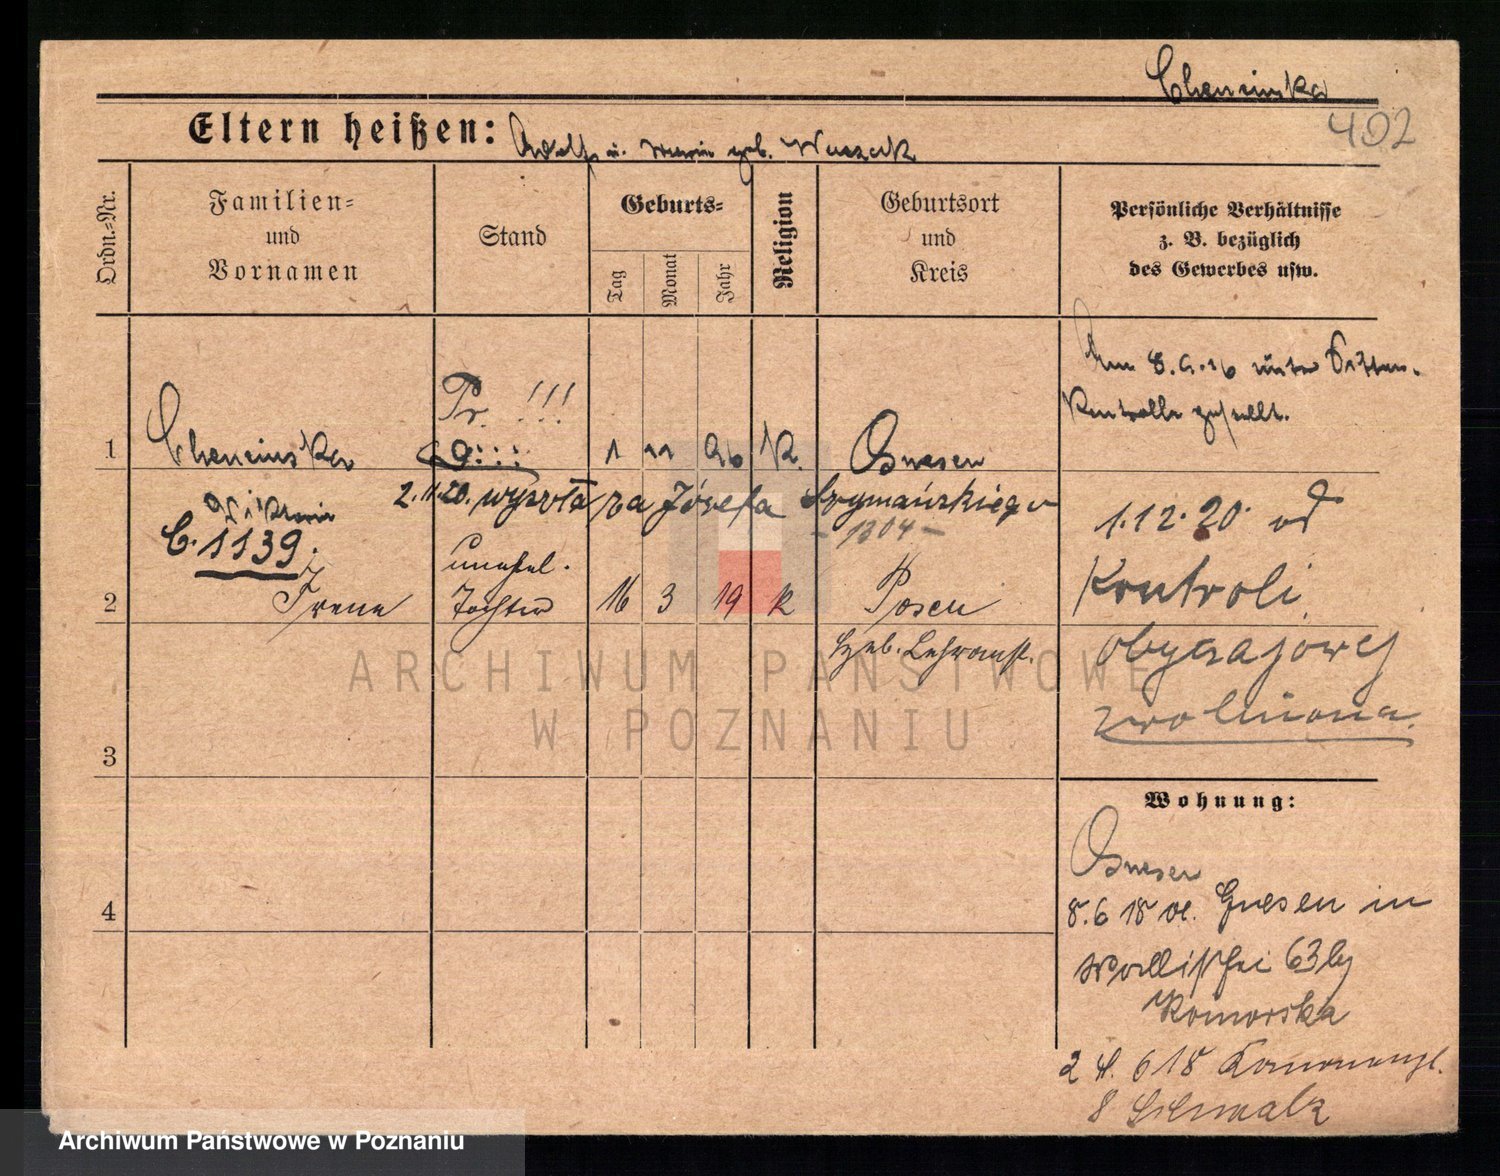 Cheminska
402
Eltern heißen: Adolf u. Marie geb.
Ordn.-Nr.
Familien-
und
Vornamen
Stand
Geburts-
Tag
Monat
Jahr
Religion
Geburtsort
und
Kreis
Persönliche Verhältnisse
z. B. bezüglich
des Gewerbes usw.
Am 8.9.16 unter Sitten-
Kontrolle gestellt.
Pr. !!!
1 Cheminska 1 11 96 K. Gnesen
Viktoria
2.11.20. wyszła za Józefa Szymańskiego
1304
C. 1139.
1.12.20 od
Kontroli
obyczajowej
zwolniona.
unehel.
2 Irene Tochter 16 3 19 k Posen
Heb. Lehranst.
3
4
Wohnung:
Gnesen
8.6 18 v. Gnesen in
Wallischei 63 by
Komorska
2 H. 6 18
8
ARCHIWUM PAŃSTWOWE
W POZNANIU
Archiwum Państwowe w Poznaniu